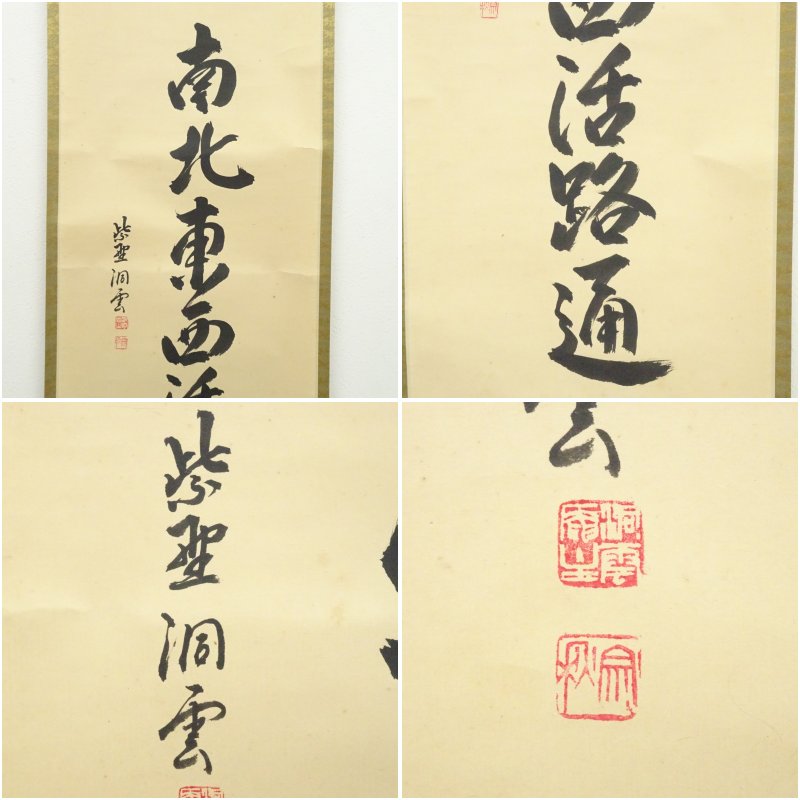 南北東西活
紫野 洞雲
西活路通
紫野 洞雲
雲